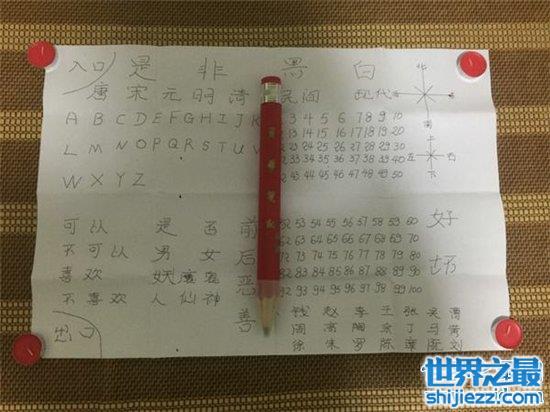 入口 是 非 黑 白
北
唐 宋 元 明 清 民间 现代
南
A B C D E F G H I J K 3 4 5 6 7 8 9 10
L M N O P Q R S T U V 13 14 15 16 17 18 19 20
23 24 25 26 27 28 29 30
上
左 右
下
W X Y Z 33 34 35 36 37 38 39 40
43 44 45 46 47 48 49 50
可以 是 否 前 52 53 54 55 56 57 58 59 60 好
不可以 男 女 后 62 63 64 65 66 67 68 69 70
72 73 74 75 76 77 78 79 80 坏
喜欢 妖魔鬼 恶 82 83 84 85 86 87 88 89 90
不喜欢 人 仙 神 92 93 94 95 96 97 98 99 100
出口 善 钱 赵 李 王 张 吴 曹
周 高 余 丁 马 黄
徐 朱 罗 陈 刘
世界之最
shijiezz1.com